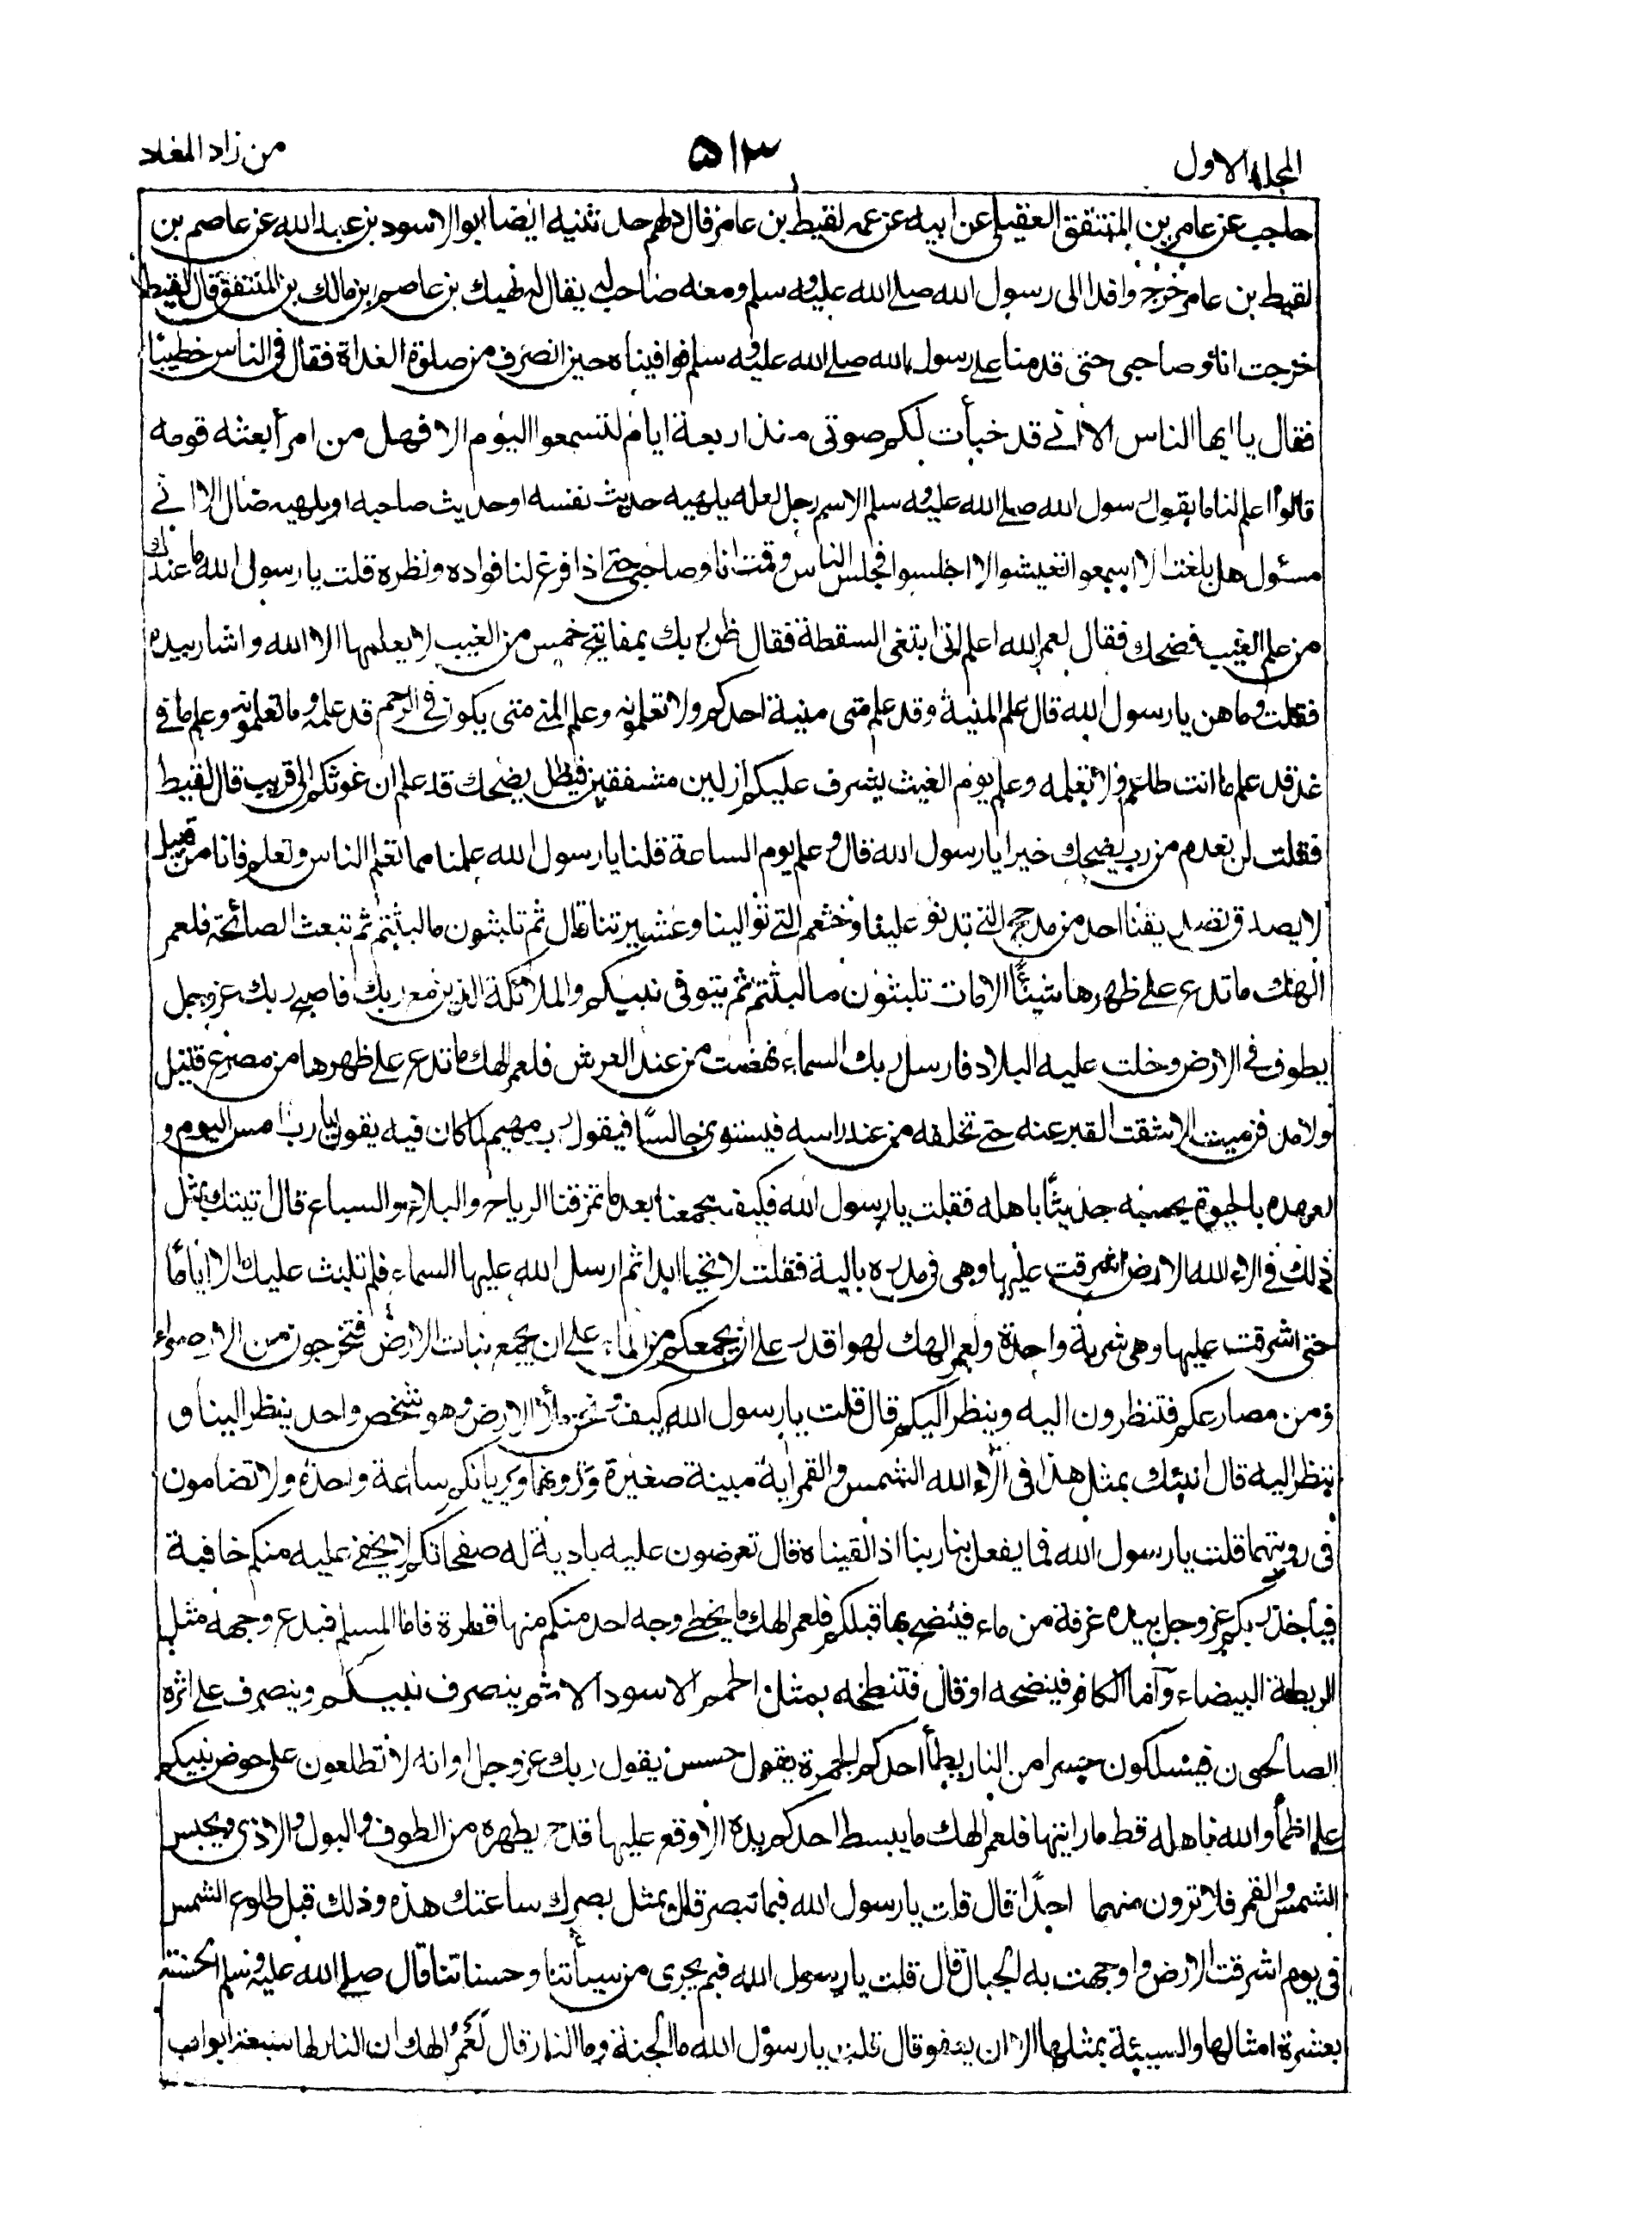 المجلد الاول
٥١٣
من زاد المعاد
حاجب عن عامر بن المنتفق العقيلي عن ابيه عن عمه لقيط بن عامر قال دلهم حدثنيه ايضا ابو الاسود بن عبد الله عن عاصم بن
لقيط بن عامر خرج وافدا الى رسول الله صلے الله عليه وسلم ومعه صاحب له يقال له نهيك بن عاصم بن مالك بن المنتفق قال لقيط
خرجت انا وصاحبى حتى قدمنا على رسول الله صلے الله عليه وسلم فوافيناه حين انصرف من صلوة الغداة فقال فى الناس خطيبًا
فقال يا ايها الناس الا انے قد خبأت لكم صوتى منذ اربعة ايام لتسمعوا اليوم الا فهل من امرأ بعثه قومه
قالوا اعلم لنا ما يقول رسول الله صلے الله عليه وسلم الا سم رجل لعله يلهيه حديث نفسه او حديث صاحبه او يلهيه ضال الا انے
مسئول هل بلغت الا اسمعوا تعيشوا الا اجلسوا فجلس الناس وقمت انا وصاحبى حتے اذا فرغ لنا فواده ونظره قلت يا رسول الله ما عندك
من علم الغيب فضحك فقال لعمر الله اعلم انى ابتغى السقطة فقال ظن ربك بمفاتيح خمس من الغيب لا يعلمها الا الله واشار بيده
فقلت وما هن يا رسول الله قال علم المنية وقد علم متى منية احدكم ولا تعلمونه وعلم المنے متى يكون فى الرحم قد علمه وما تعلمونه وعلم ما فے
غد قد علم ما انت طاعم ولا تعلمه وعلم يوم الغيث يشرف عليكم ازلين مشفقين فيظل يضحك قد علم ان غوثكم الى قريب قال لقيط
فقلت لن نعدم من رب يضحك خيرا يا رسول الله قال وعلم يوم الساعة قلنا يا رسول الله علمنا مما تعلم الناس وتعلم فانا من قبيل
لا يصدق تصديقنا احد من مدحج التے تدنو علينا وخثعم التے توالينا وعشيرتنا قال ثم تلبثون ما لبثتم ثم تبعث الصائحة فلعمر
الهك ما تدع على ظهرها شيئًا الا مات تلبثون ما لبثتم ثم يتوفى نبيكم والملائكة الذين مع ربك فاصبح ربك عز وجل
يطوف فے الارض وخلت عليه البلاد فارسل ربك السماء تهضت من عند العرش فلعمر الهك ما تدع على ظهرها من مصرع قتيل
ولا مدفن ميت الا شقت القبر عنه حتے تخلفه من عند راسه فيستوى جالسًا فيقول رب مهيم لما كان فيه يقول يا رب امس اليوم و
لعهده بالحيوة يحسبه حديثًا باهله فقلت يا رسول الله فكيف يجمعنا بعد ما تمزقنا الرياح والبلاء والسباع قال انبئك بمثل
ذلك فى الاء الله الارض اشرقت عليها وهى فى مدرة بالية فقلت لا تحيا ابدا ثم ارسل الله عليها السماء فلم تلبث عليك الا اياما
حتى اشرقت عليها وهى شربة واحدة ولعمر الهك لهو اقدر على ان يجمعكم من الماء على ان يجمع نبات الارض فتخرجون من الاصواء
ومن مصارعكم فتنظرون اليه وينظر اليكم قال قلت يا رسول الله كيف ونحن ملأ الارض وهو شخص واحد ينظر الينا و
ننظر اليه قال انبئك بمثل هذا فى الاء الله الشمس والقمر اية مبينة صغيرة ترونهما ويريانكم ساعة واحدة ولا تضامون
فى رويتهما قلت يا رسول الله فما يفعل بنا ربنا اذا لقيناه قال تعرضون عليه بادية له صفحاتكم لا يخفى عليه منكم خافية
فياخذ ربكم عز وجل بيده غرفة من ماء فينضح بها قبلكم فلعمر الهك ما يخطے وجه احد منكم منها قطرة فاما المسلم فيدع وجهه مثل
الريطة البيضاء واما الكافر فينضحه او قال فتنطخه بمثل الحمم الاسود الا ثم ينصرف نبيكم وينصرف على اثره
الصالحون فيسلكون جسرا من النار يطأ احدكم الجمرة يقول حس يقول ربك عز وجل او انه لا تطلعون على حوض نبيكم
على اظمأ والله ناهله قط ما رايتها فلعمر الهك ما يبسط احدكم يده الا وقع عليها قدح يطهره من الطوف والبول والاذى ويحبس
الشمس والقمر فلا ترون منهما احدًا قال قلت يا رسول الله فبما نبصر قال بمثل بصرك ساعتك هذه وذلك قبل طلوع الشمس
فى يوم اشرقت الارض واوجهت به الجبال قال قلت يا رسول الله فبم يجزى من سيأتنا وحسناتنا قال صلے الله عليه وسلم الحسنة
بعشرة امثالها والسيئة بمثلها الا ان يعفو قال قلت يا رسول الله ما الجنة وما النار قال لَعَمْرُ الهك ان النار لها سبعة ابواب